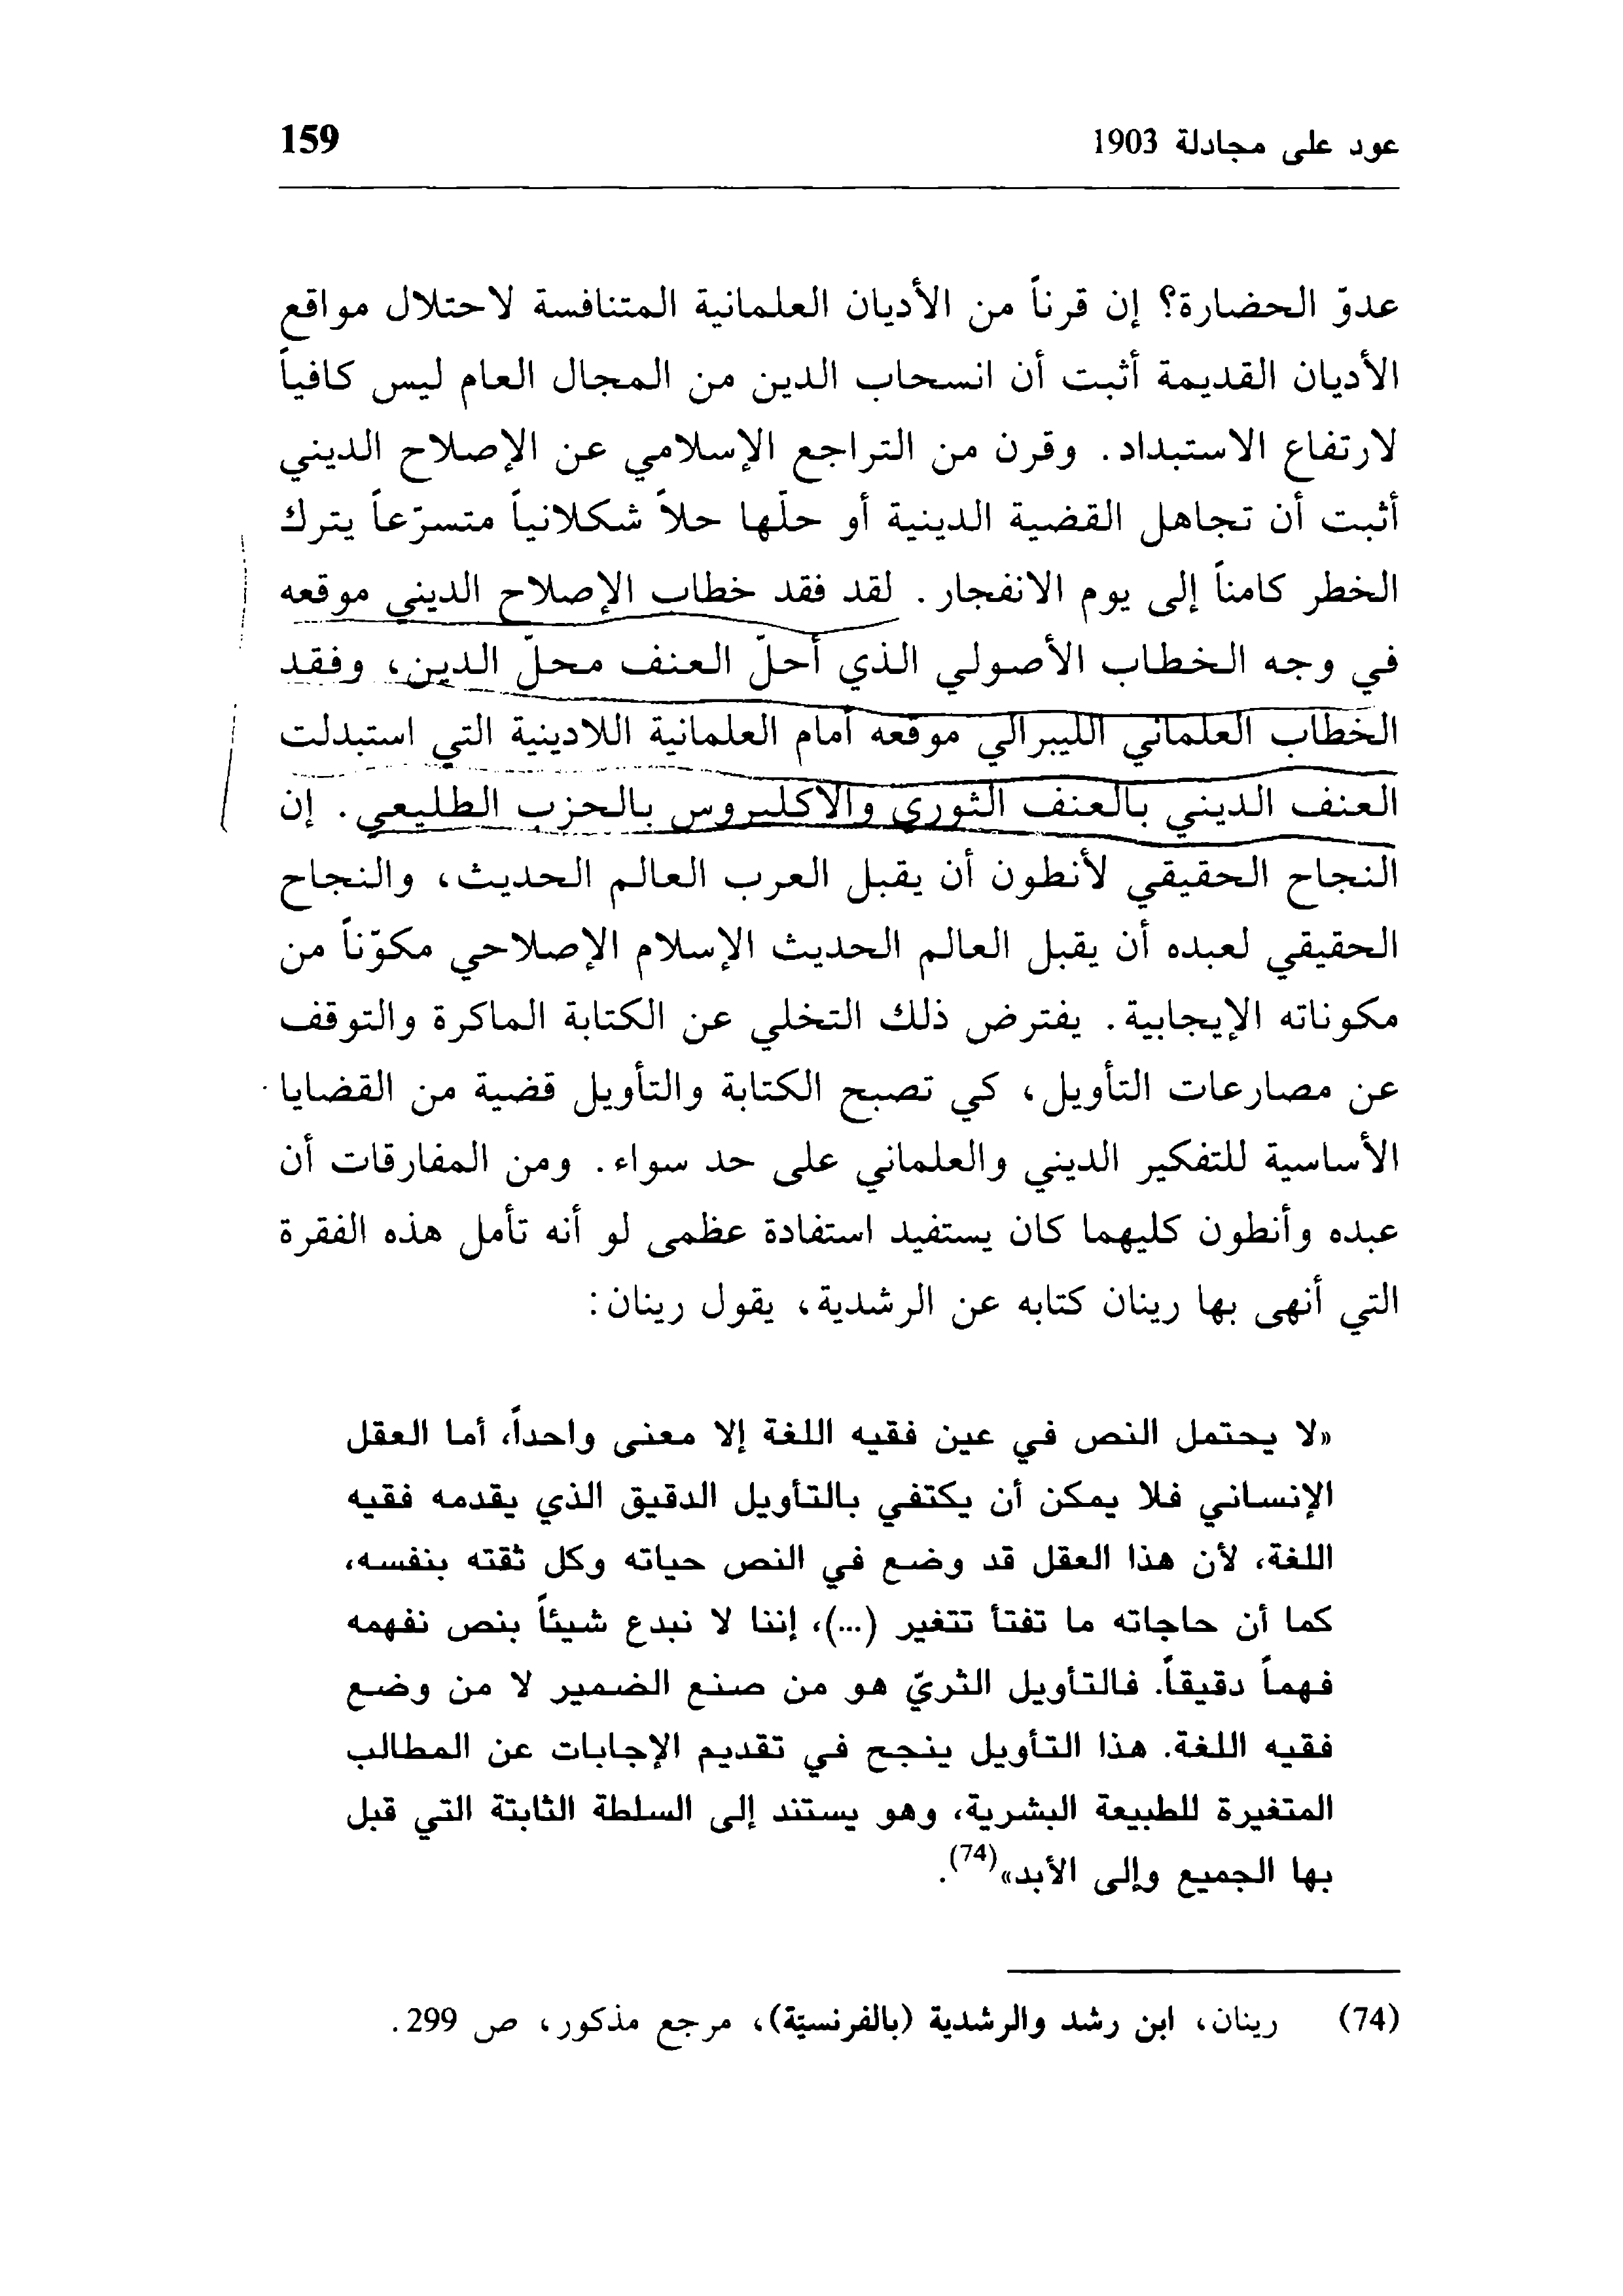 عود على مجادلة 1903
159
عدوّ الحضارة؟ إن قرناً من الأديان العلمانية المتنافسة لاحتلال مواقع
الأديان القديمة أثبت أن انسحاب الدين من المجال العام ليس كافياً
لارتفاع الاستبداد. وقرن من التراجع الإسلامي عن الإصلاح الديني
أثبت أن تجاهل القضية الدينية أو حلّها حلاً شكلانياً متسرّعاً يترك
الخطر كامناً إلى يوم الانفجار. لقد فقد خطاب الإصلاح الديني موقعه
في وجه الخطاب الأصولي الذي أحلّ العنف محلّ الدين، وفقد
الخطاب العلماني الليبرالي موقعه أمام العلمانية اللادينية التي استبدلت
العنف الديني بالعنف الثوري والاكليروس بالحزب الطليعي. إن
النجاح الحقيقي لأنطون أن يقبل العرب العالم الحديث، والنجاح
الحقيقي لعبده أن يقبل العالم الحديث الإسلام الإصلاحي مكوّناً من
مكوناته الإيجابية. يفترض ذلك التخلي عن الكتابة الماكرة والتوقف
عن مصارعات التأويل، كي تصبح الكتابة والتأويل قضية من القضايا
الأساسية للتفكير الديني والعلماني على حد سواء. ومن المفارقات أن
عبده وأنطون كليهما كان يستفيد استفادة عظمى لو أنه تأمل هذه الفقرة
التي أنهى بها رينان كتابه عن الرشدية، يقول رينان:
«لا يحتمل النص في عين فقيه اللغة إلا معنى واحداً، أما العقل
الإنساني فلا يمكن أن يكتفي بالتأويل الدقيق الذي يقدمه فقيه
اللغة، لأن هذا العقل قد وضع في النص حياته وكل ثقته بنفسه،
كما أن حاجاته ما تفتأ تتغير (...)، إننا لا نبدع شيئاً بنص نفهمه
فهماً دقيقاً. فالتأويل الثريّ هو من صنع الضمير لا من وضع
فقيه اللغة. هذا التأويل ينجح في تقديم الإجابات عن المطالب
المتغيرة للطبيعة البشرية، وهو يستند إلى السلطة الثابتة التي قبل
بها الجميع وإلى الأبد»(74).
(74) رينان، ابن رشد والرشدية (بالفرنسيّة)، مرجع مذكور، ص 299.